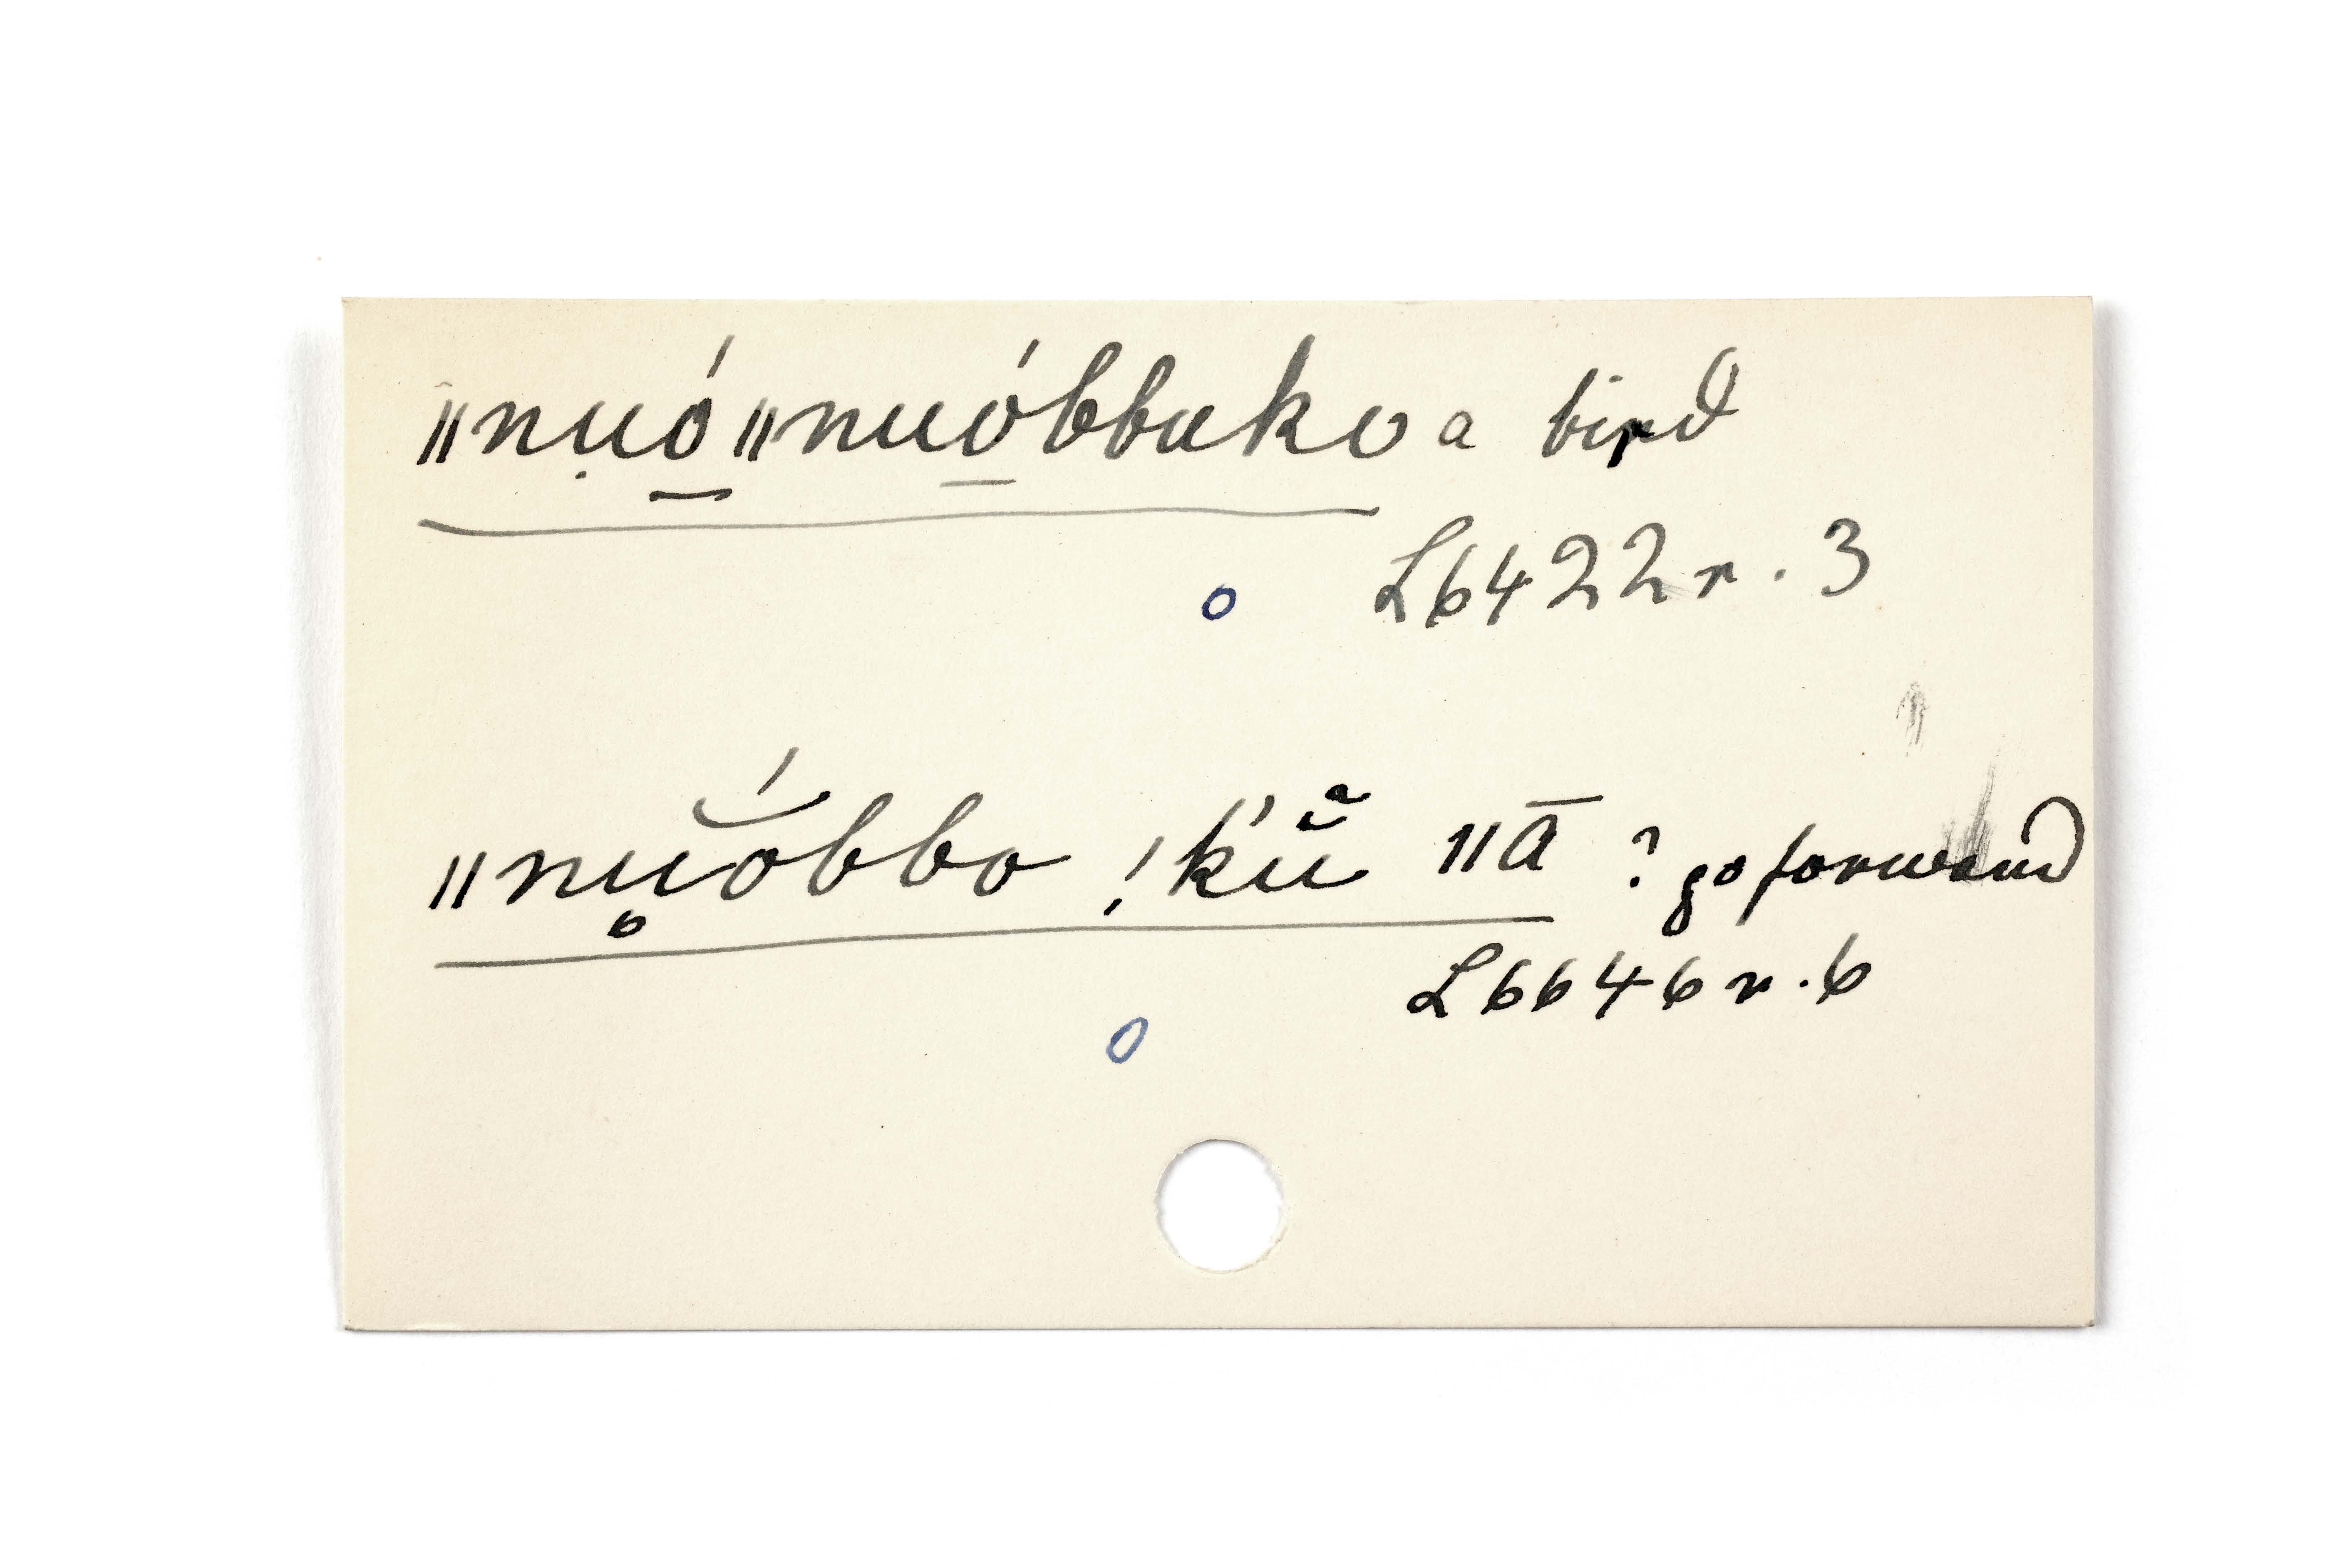 ǁnụó̱ǁnuó̱bbuko a bird
L6422r.3
ǁnu̥ŏ́bbo !k'ŭᵃ ǁā ? go forward
L6646r.6